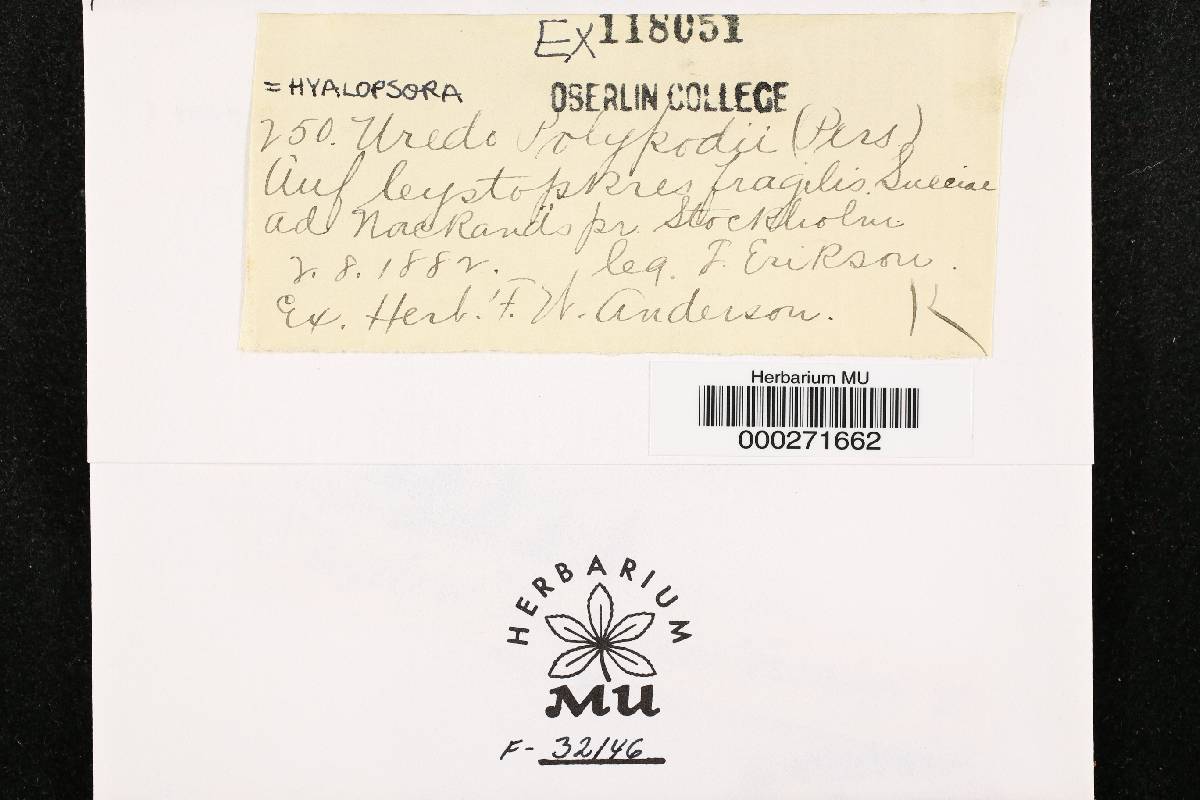 Ex 118051
= HYALOPSORA
OBERLIN COLLEGE
250. Uredo Polypodii (Pers)
Auf Cystopteris fragilis. Sueciae
ad Nackanäs pr. Stockholm
2. 8. 1882. leg. J. Erikson.
Ex. Herb. F. W. Anderson. K
Herbarium MU
000271662
HERBARIUM
MU
F- 32146